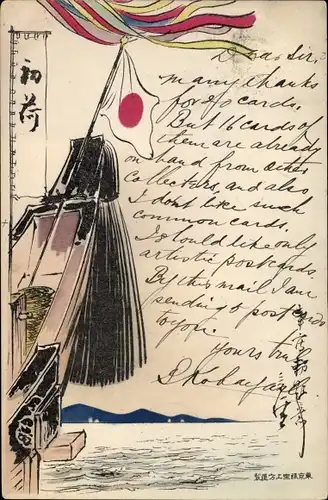 初荷
Dear Sir,
Many thanks
for 20 cards.
But 16 cards of
them are already
on hand from other
collectors, and also
I dont like such
common cards.
Iould like only
artistic postcards.
By this mail I am
sending 2 postcards
to you.
Yours truly
S. Kobayashi